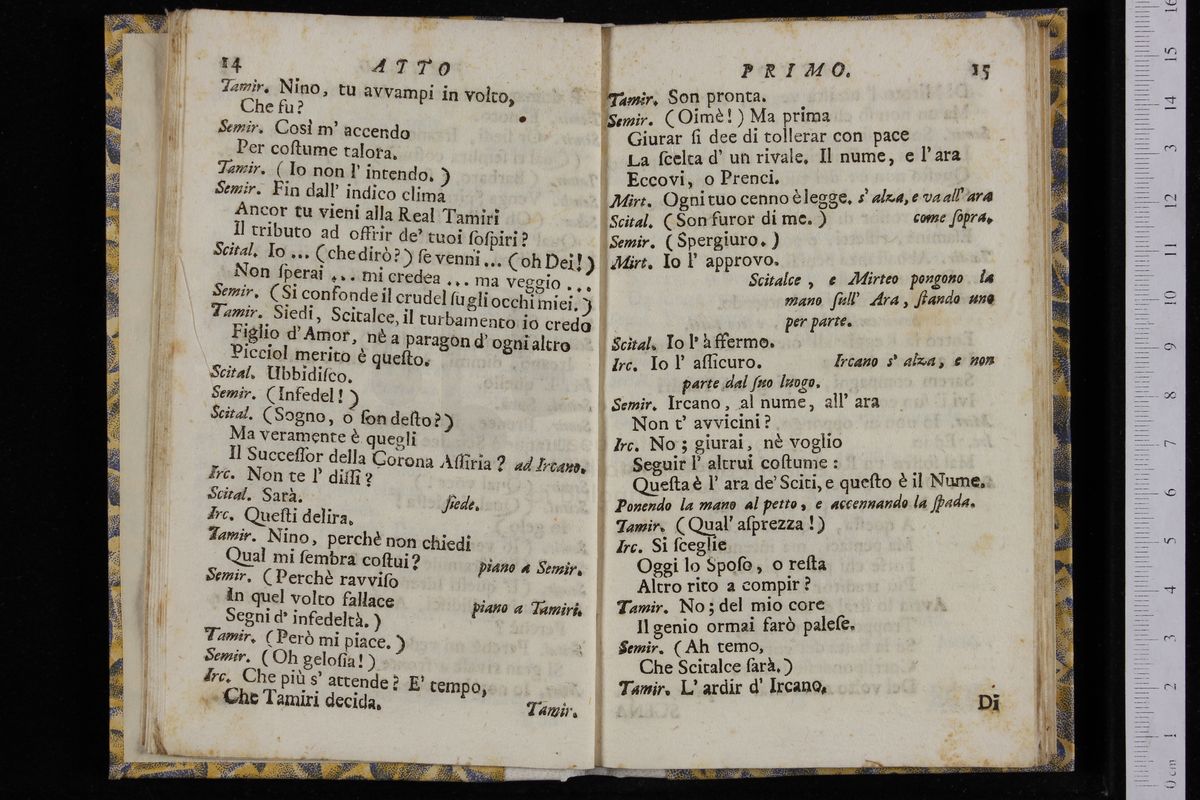 14 ATTO
Tamir. Nino, tu avvampi in volto,
Che fu?
Semir. Così m' accendo
Per coſtume talora.
Tamir. (Io non l' intendo.)
Semir. Fin dall' indico clima
Ancor tu vieni alla Real Tamiri
Il tributo ad offrir de' tuoi ſoſpiri?
Scital. Io ... (che dirò?) ſe venni ... (oh Dei!)
Non ſperai ... mi credea ... ma veggio ...
Semir. (Si confonde il crudel ſu gli occhi miei.)
Tamir. Siedi, Scitalce, il turbamento io credo
Figlio d' Amor, nè a paragon d' ogni altro
Picciol merito è queſto.
Scital. Ubbidiſco.
Semir. (Infedel!)
Scital. (Sogno, o ſon deſto?)
Ma veramente è quegli
Il Succeſſor della Corona Aſſiria? ad Ircano.
Irc. Non te l' diſſi?
Scital. Sarà. ſiede.
Irc. Queſti delira.
Tamir. Nino, perchè non chiedi
Qual mi ſembra coſtui? piano a Semir.
Semir. (Perchè ravviſo
In quel volto fallace piano a Tamiri.
Segni d' infedeltà.)
Tamir. (Però mi piace.)
Semir. (Oh geloſia!)
Irc. Che più s' attende? E' tempo,
Che Tamiri decida.
Tamir.
PRIMO. 15
Tamir. Son pronta.
Semir. (Oimè!) Ma prima
Giurar ſi dee di tollerar con pace
La ſcelta d' un rivale. Il nume, e l' ara
Eccovi, o Prenci.
Mirt. Ogni tuo cenno è legge. s' alza, e va all' ara
Scital. (Son furor di me.) come ſopra.
Semir. (Spergiuro.)
Mirt. Io l' approvo.
Scitalce, e Mirteo pongono la
mano ſull' Ara, ſtando uno
per parte.
Scital. Io l' àffermo.
Irc. Io l' aſſicuro. Ircano s' alza, e non
parte dal ſuo luogo.
Semir. Ircano, al nume, all' ara
Non t' avvicini?
Irc. No; giurai, nè voglio
Seguir l' altrui coſtume:
Queſta è l' ara de' Sciti, e queſto è il Nume.
Ponendo la mano al petto, e accennando la ſpada.
Tamir. (Qual' aſprezza!)
Irc. Si ſceglie
Oggi lo Spoſo, o reſta
Altro rito a compir?
Tamir. No; del mio core
Il genio ormai farò paleſe.
Semir. (Ah temo,
Che Scitalce ſarà.)
Tamir. L' ardir d' Ircano,
Di